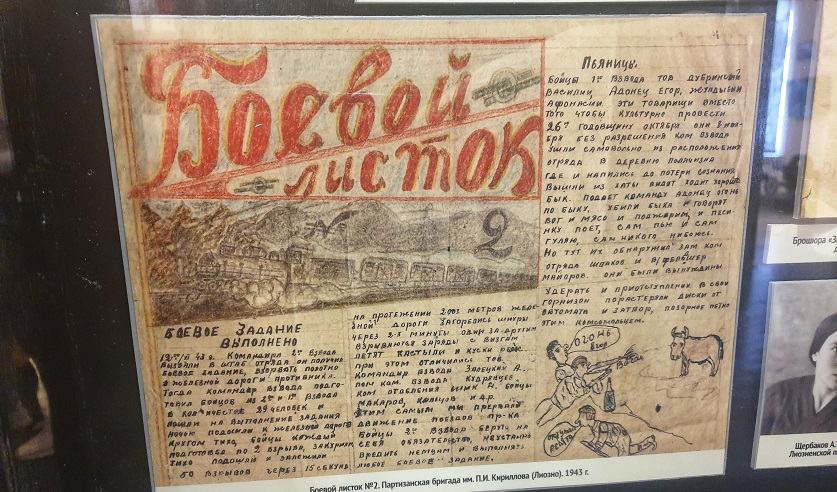 Боевой
листок
№ 2
БОЕВОЕ ЗАДАНИЕ
ВЫПОЛНЕНО
Командира 2го Взвода
Вызвали в штаб отряда он получил
боевое задание, взорвать полотно
железной дороги противника.
Тогда командир взвода подго-
товил бойцов из 2го и 1го взвода
в количестве 29 человек и
пошли на выполнение задания
ночью подошли к железной дороге
кругом тихо, бойцы каждый
подготовил по 2 взрыва, закурили
тихо подошли и заложили
50 взрывов через 15 секунд
на протежении 200х метров желе-
зной дороги загорелись шнуры
через 2-х минуты один за другим
взрываются заряды с визгам
летят кастыли и куски рельс
при этом отличились тов.
Командир взвода Залецкий А.,
пом ком. взвода Кудрявцев
ком отделения бойцы
Макаров, и др.
этим самым мы прервали
движение поездов пр-ка
Бойцы 2го взвода берут на
себя обязательство, неустанно
вредить немцам и выполнять
любое боевое задание.
Пьяницы.
Бойцы 1го взвода тов Дубринский
Василий, Адонец Егор, Желудысий
Афонасий. эти товарищи вместо
того чтобы культурно провести
26ю годовщину октября они 8 ноя-
бря без разрешения ком взвода
ушли самовольно из расположения
отряда в деревню
где и напились до потери сознания
вышли из хаты видят ходит хороший
бык. подает команду Адонец огонь
по быку, убили быка и говорят
вот и мясо и поджарим, и песи-
нку поет, сам пью и сам
гуляю, сам никого небоюсь.
Но тут их обнаружил зам ком
отряда Шпаков и в/фельдшер
Майоров. они были вынуждины
удерать и приотступлении в свой
горнизон порастеряли диски от
автомата и затвор, позорное пятно
этим комсомольцам.
Огонь
Егор
Вася
Боевой листок №2. Партизанская бригада им. П.И. Кириллова (Лиозно). 1943 г.
Брошюра
Щербаков А.
Лиозненской